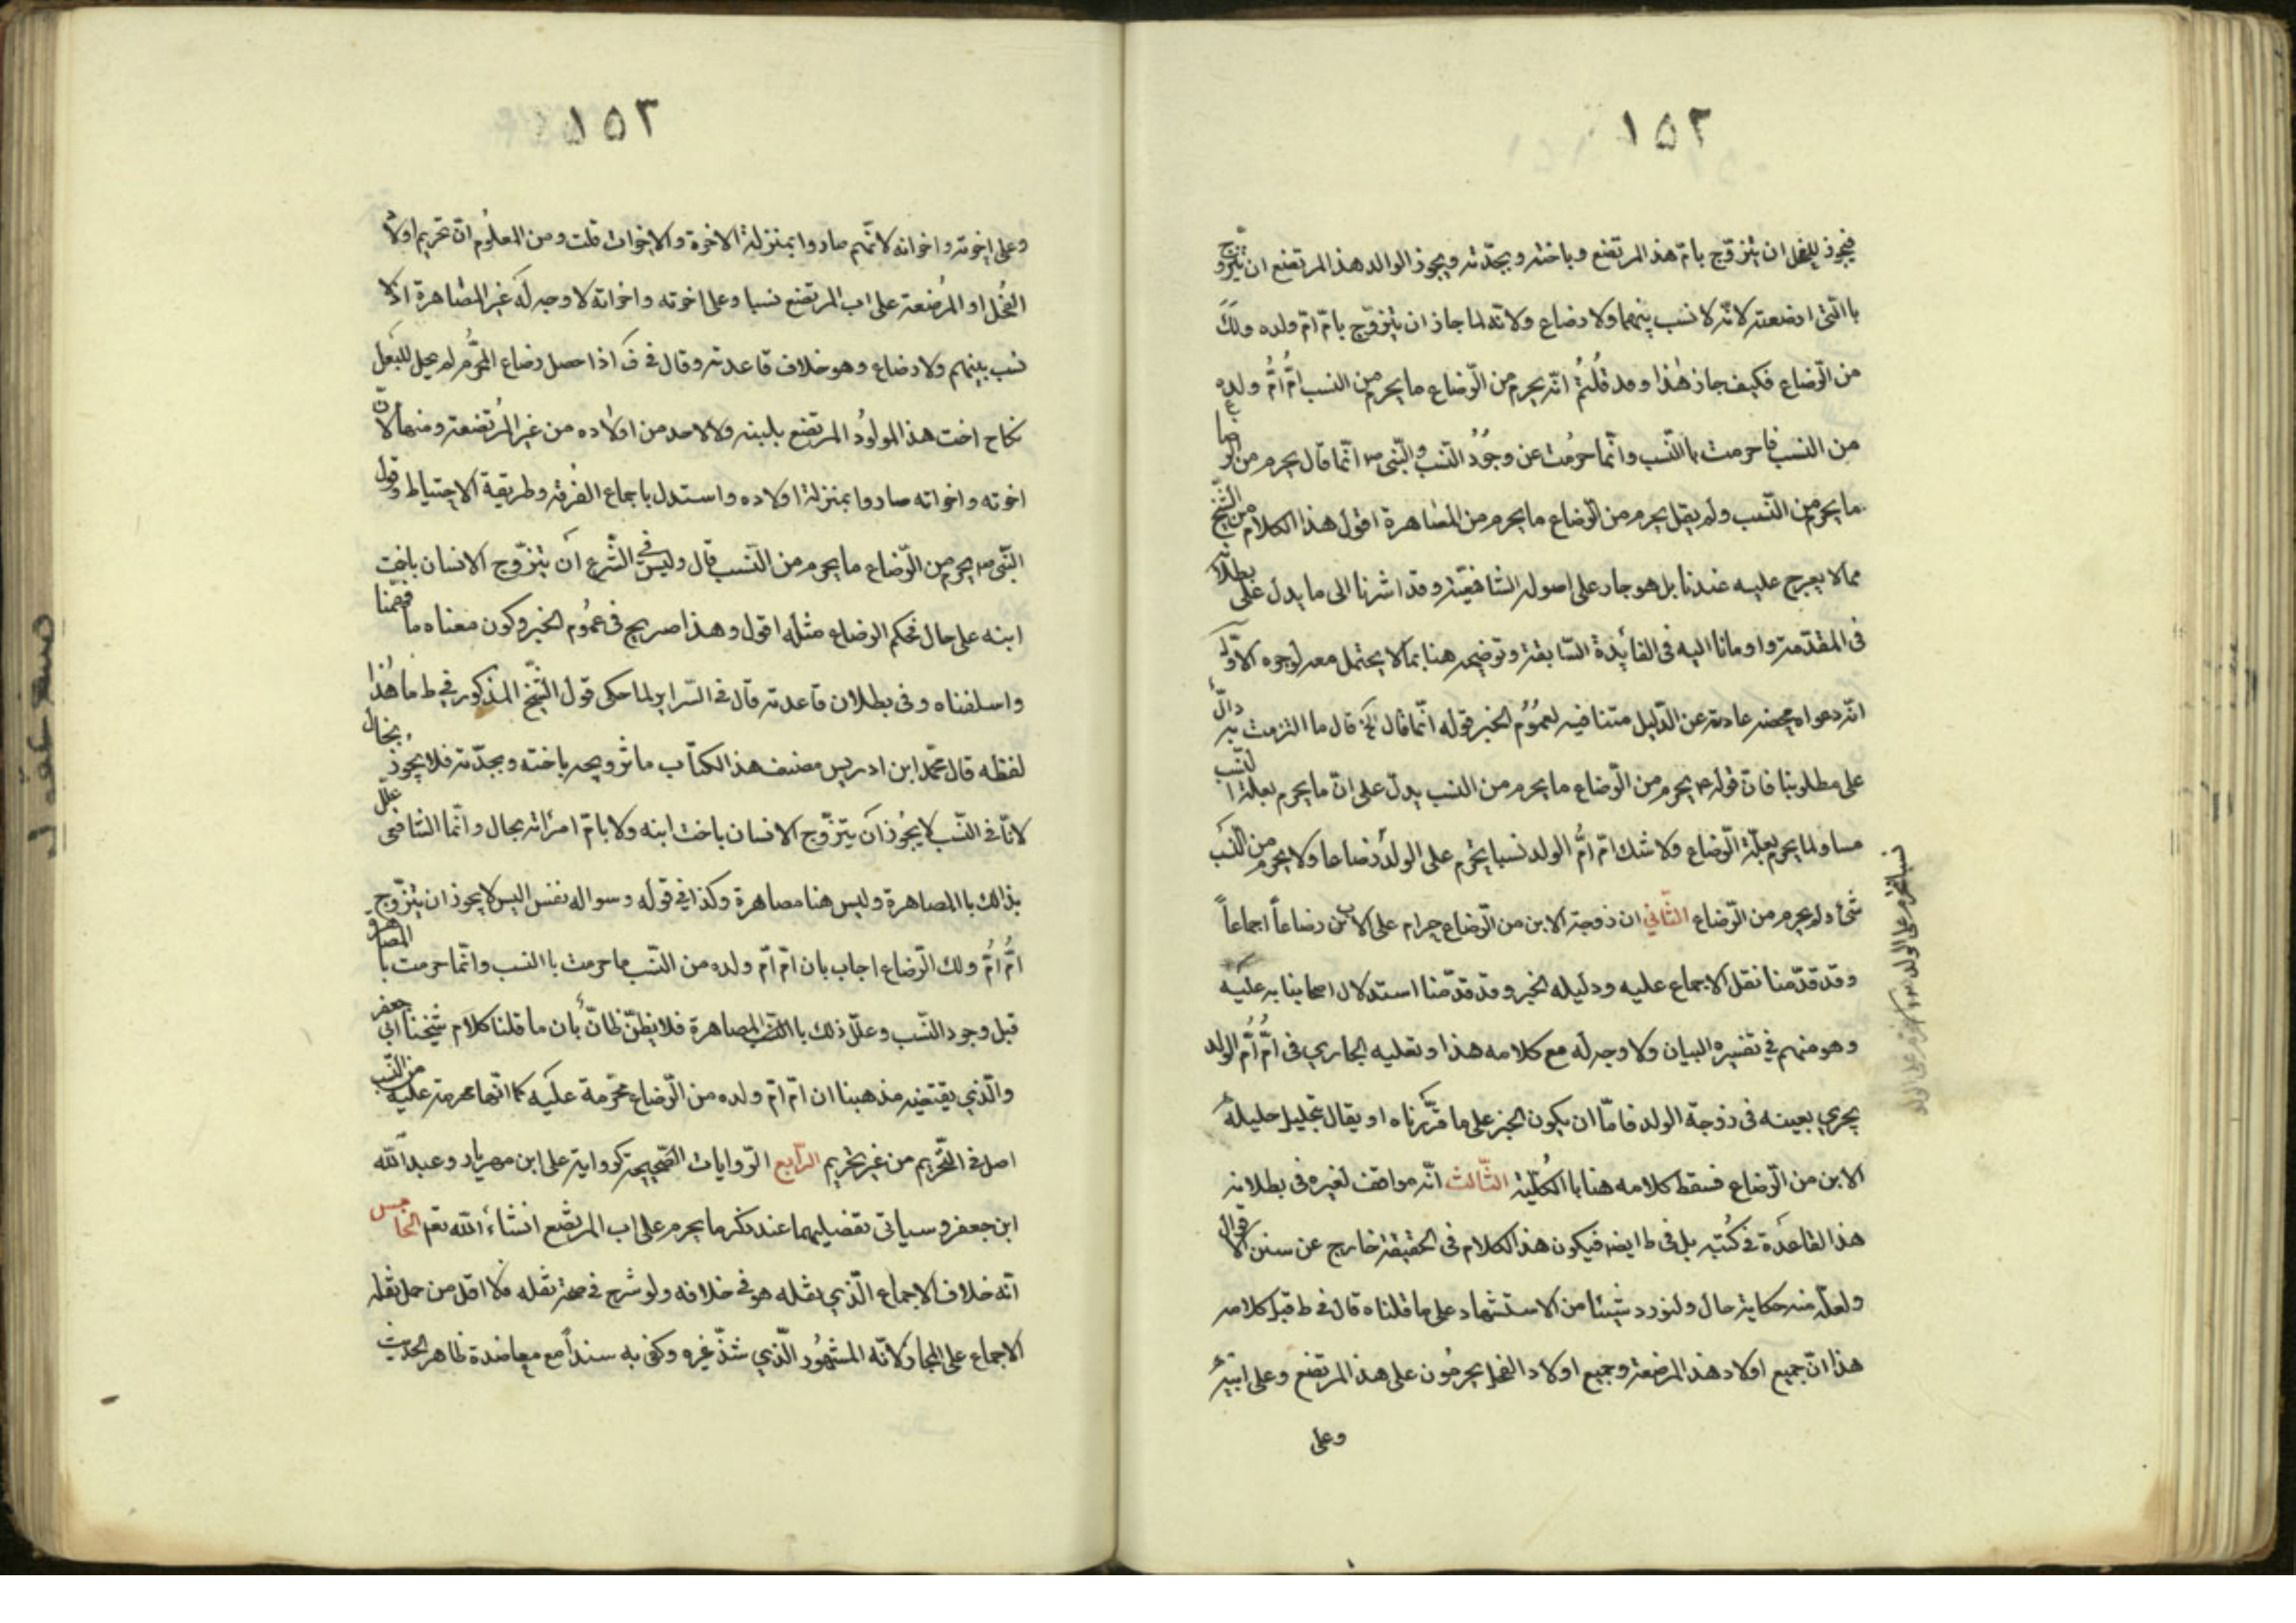 ١٥٢
فيجوز للفحل ان يتزوّج بامّ هذا المرتضع وباخته وبجدّته ويجوز الوالد هذا المرتضع ان يتزوج
باالتى ارضعته لانّه لا نسب بينهما ولا رضاع ولانّه لما جاز ان يتزوّج بامّ امّ ولده ولك
من الرّضاع فكيف جاز هٰذا وقد قُلتُم انّه يحرم من الرّضاع ما يحرم من النسب امُّ امُّ ولده
من النسب فاحرمت باالنّسب وانّما حرمُت عن وجُوُد النّسب والنّبى ص انّما قال يحرم من الرضاع
ما يحرم من النّسب ولم يقل يحرم من الرّضاع ما يحرم من المصاهرة اقول هذا الكلام من الشّيخ
ممالا يعرج عليه عندنا بل هو جار على اصوله الشافعيّة وقد اشرنا الى ما يدل على بطلانه
فى المقدّمة واومانا اليه فى الفائِدة السّابقة وتوضيحه هنا بما لا يحتمل معه لوجوه الاوّل
انّه دعواه محضه عادته عن الدّليل متنافيه لعمُوُم الخبر قوله انّما قال الخ قال ما التزمت به دالّ
على مطلوبنا فان قوله ص يحرم من الرّضاع ما يحرم من النسب يدلّ على انّ ما يحرم بعلة النسب
مساو لما يحرم بعلّة الرّضاع ولا شك انّ امُّ الولد نسبا يحرُم على الولد رضاعا ولا يحرم من النّسب
شئ ولم يحرم من الرّضاع الثّانى ان زوجة الابن من الرّضاع حرام على الاب من رضاعاً اجماعاً
وقد قدّمنا نقل الاجماع عليه ودليله الخبر وقد قدّمنا استدلال اصحابنا به عليه
وهو منهم فى تفسيره البيان ولا وجه له مع كلامه هذا وتعليه الجارى فى امُّ امُّ الولد
يجرى بعينه فى زوجة الولد فامّا ان يكون الخبر على ما قرّرناه او يقال بتحليل حليلة
الابن من الرّضاع فسقط كلامه هنا باالكُليّة الثّالث انّه موافق لغيره فى بطلان
هذا القاعدة فى كُتبه بل فى ط ايضه فيكون هذا الكلام فى الحقيقة خارج عن سنن الاقوال
ولعلّه منه حكاية حال ولنورد شيئا من الاستشهاد على ما قلناه قال فى ط قبل كلامه
هذا انّ جميع اولاد هذا المرضعة وجميع اولاد الفحل يحرمُون على هذا المرتضع وعلى ابيه
وعلى
١٥٣
وعلى اخوته واخواته لانّهم صاروا بمنزلة الاخوة والاخوات قلت ومن المعلُوم انّ تحريم اولاد
الفحُل او المرُضعة على اب المرتضع نسبا وعلى اخوته واخواته لا وجه له غير المصاهرة اذ لا
نسب بينهم ولا رضاع وهو خلاف قاعدته وقال فى ف اذا حصل رضاع المحُرّم لم يحل للفحل
نكاح اخت هذا المولوُد المرتضع بلبنه ولا لاحد من اولاده من غير المُرتضعة ومنها لانّ
اخوته واخواته صاروا بمنزلة اولاده واستدل باجماع الفرقة وطريقة الاحتياط وقول
النّبى ص يحرم من الرّضاع ما يحرم من النّسب قال وليس فى الشّرع ان يتزوّج الانسان باخت
ابنه على حال فحكم الرضاع مثله اقول وهذا صريح فى عمُوم الخبر وكون معناه ما فهمنا
واسلفناه وفى بطلان قاعدته قال فى السّراير لما حكى قول الشّيخ المذكور فى ط ما هُذا
لفظه قال محمّد ابن ادريس مصنف هذا الكتاب ما تزويجه باخته وبجدّته فلا يجوز بحال
لانّا فى النّسب لا يجُوز ان يتزوّج الانسان باخت ابنه ولا بامّ امرئته بحال وانّما الشافعى علل
بذالك باالمصاهرة وليس هنا مصاهرة وكذا فى قوله وسواله نفس اليس لا يجوز ان يتزوّج
امُّ امُّ ولك الرّضاع اجاب بان امّ امّ ولده من النّسب ما حرمت باالنسب وانّما حرمت باالمصاهرة
قبل وجود النّسب وعلّل ذلك باالنسب المصاهرة فلا يظنّ ظانّ بان ما قلنا كلام شيخنا ابى جعفر
والّذى يقتضيه مذهبنا ان امّ امّ ولده من الرّضاع محرّمة عليه كما انّها محرمة عليه من النّسب
اصل فى التّحريم من غير تحريم الرّابع الرّوايات الصّحيحة كرواية على ابن مهريار وعبد الله
ابن جعفر وسياتى تفضيلهما عند ذكر ما يحرم على اب المرتضع انشاء الله تعم الخامس
انّه خلاف الاجماع الّذى نقله هو فى خلافه ولو شرح فى صحّة نقله فلا اقل من حمل نقله
الاجماع على المجاز ولانّه المشهُور الّذى شذّ غيره وكفى به سنداً مع معاضدة ظاهر الحديث